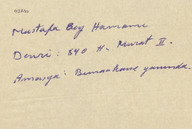 Mustafa Bey Hamamı
Devri: 840 H. Murat II.
Amasya: Bimarhane yanında.